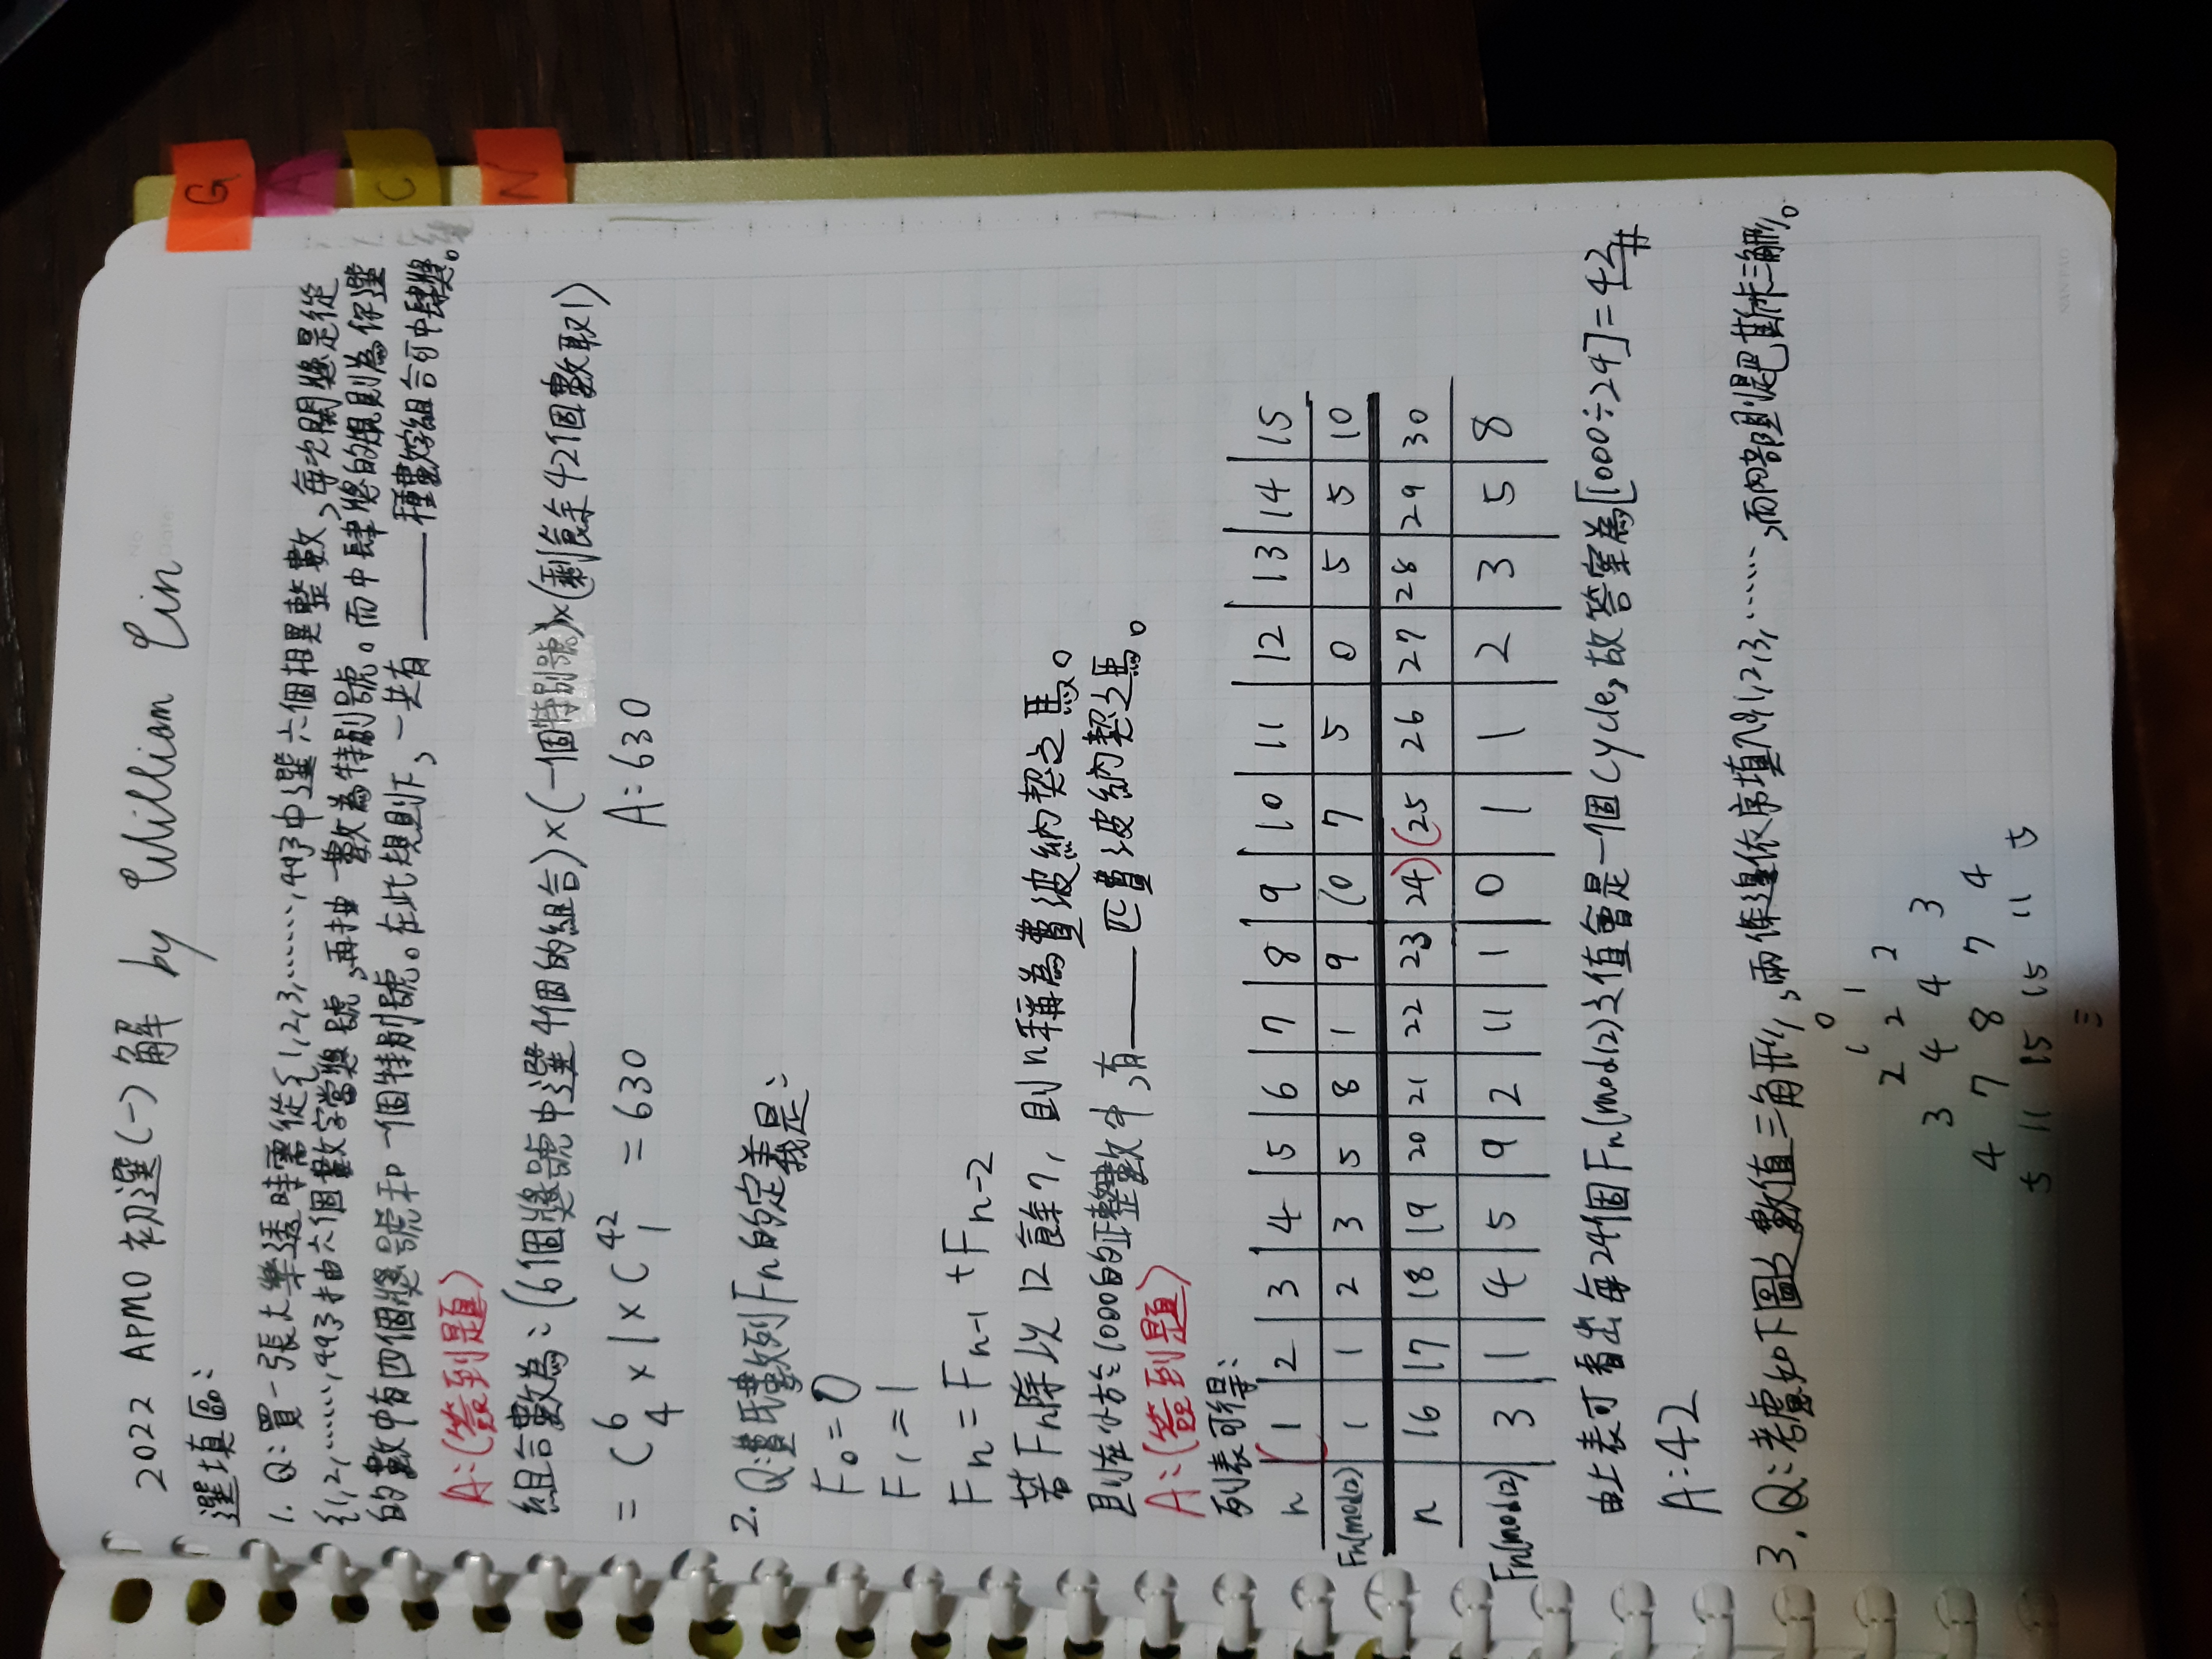 G
A
C
N
2022 APMO 初選(一)解 by William Lin
選填區:
1. Q:買一張大樂透時需從{1,2,3,......,49}中選六個相異整數,每次開獎是從
{1,2,......,49}抽六個數字當獎號,再抽一數為特別號。而中肆獎的規則為你選
的數中有四個獎號和一個特別號。在此規則下,一共有____種數字組合可中肆獎。
A:(簽到題)
組合數為:(6個獎號中選4個的組合)×(一個特別號)×(剩餘42個數取1)
= C⁶₄ × 1 × C⁴²₁ = 630 A:630
2. Q:費氏數列Fn的定義是:
F₀=0
F₁=1
Fn=Fn-1+Fn-2
若Fn除以12餘7,則n稱為費波納契之馬。
則在小於1000的正整數中,有____匹費波納契之馬。
A:(簽到題)
列表可得:
n 1 2 3 4 5 6 7 8 9 10 11 12 13 14 15
Fn(mod12) 1 1 2 3 5 8 1 9 10 7 5 0 5 5 10
n 16 17 18 19 20 21 22 23 24) (25 26 27 28 29 30
Fn(mod12) 3 1 4 5 9 2 11 1 0 1 1 2 3 5 8
由上表可看出每24個Fn(mod12)之值會是一個cycle,故答案為[1000÷24]=42#
A:42
3. Q:考慮如下圖之數值三角形,兩條邊依序填入0,1,2,3,......,而內部則是巴斯卡三角形。
0
1 1
2 2 2
3 4 4 3
4 7 8 7 4
5 11 15 15 11 5